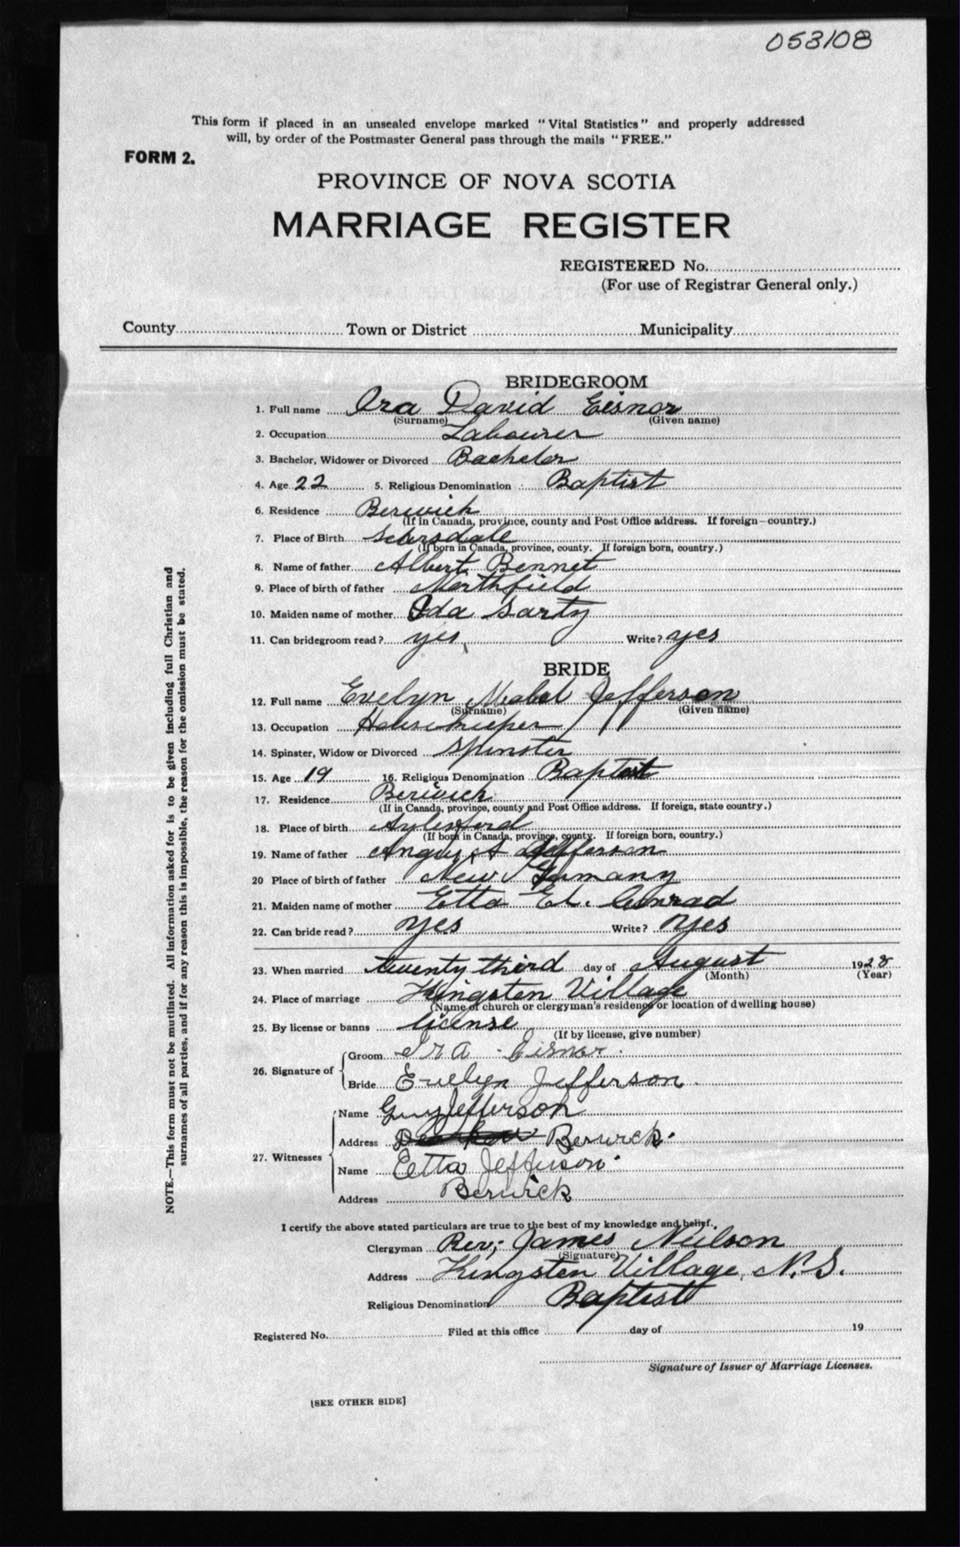 053108
This form if placed in an unsealed envelope marked "Vital Statistics" and properly addressed
will, by order of the Postmaster General pass through the mails "FREE."
FORM 2.
PROVINCE OF NOVA SCOTIA
MARRIAGE REGISTER
REGISTERED No.
(For use of Registrar General only.)
County Town or District Municipality
BRIDEGROOM
1. Full name Ira David Eisnor
(Surname) (Given name)
2. Occupation Labourer
3. Bachelor, Widower or Divorced Bachelor
4. Age 22 5. Religious Denomination Baptist
6. Residence Berwick
(If in Canada, province, county and Post Office address. If foreign—country.)
7. Place of Birth
(If born in Canada, province, county. If foreign born, country.)
8. Name of father Albert Bennet
9. Place of birth of father Northfield
10. Maiden name of mother Ida Sarty
11. Can bridegroom read? yes Write? yes
BRIDE
12. Full name Evelyn Meabel Jefferson
(Surname) (Given name)
13. Occupation Housekeeper
14. Spinster, Widow or Divorced Spinster
15. Age 19 16. Religious Denomination Baptist
17. Residence Berwick
(If in Canada, province, county and Post Office address. If foreign, state country.)
18. Place of birth Aylesford
(If born in Canada, province, county. If foreign born, country.)
19. Name of father Angus A Jefferson
20 Place of birth of father New Germany
21. Maiden name of mother Etta El. Conrad
22. Can bride read? yes Write? yes
23. When married twenty third day of August 1928
(Month) (Year)
24. Place of marriage Kingsten Village
(Name of church or clergyman's residence or location of dwelling house)
25. By license or banns license
(If by license, give number)
26. Signature of
Groom Ira Eisnor.
Bride Evelyn Jefferson.
27. Witnesses
Name Guy Jefferson
Address Berwick.
Name Eetta Jefferson.
Address Berwick
I certify the above stated particulars are true to the best of my knowledge and belief.
Clergyman Rev; James Neilson
(Signature)
Address Kingsten Village, N.S.
Religious Denomination Baptist
Registered No. Filed at this office day of 19
Signature of Issuer of Marriage Licenses.
[SEE OTHER SIDE]
NOTE.—This form must not be mutilated. All information asked for is to be given including full Christian and
surnames of all parties, and if for any reason this is impossible, the reason for the omission must be stated.